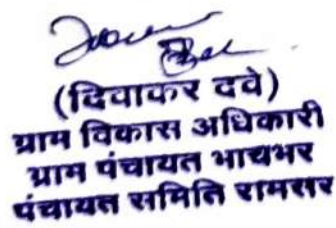 (दिवाकर दवे)
ग्राम विकास अधिकारी
ग्राम पंचायत भाचभर
पंचायत समिति रामसर